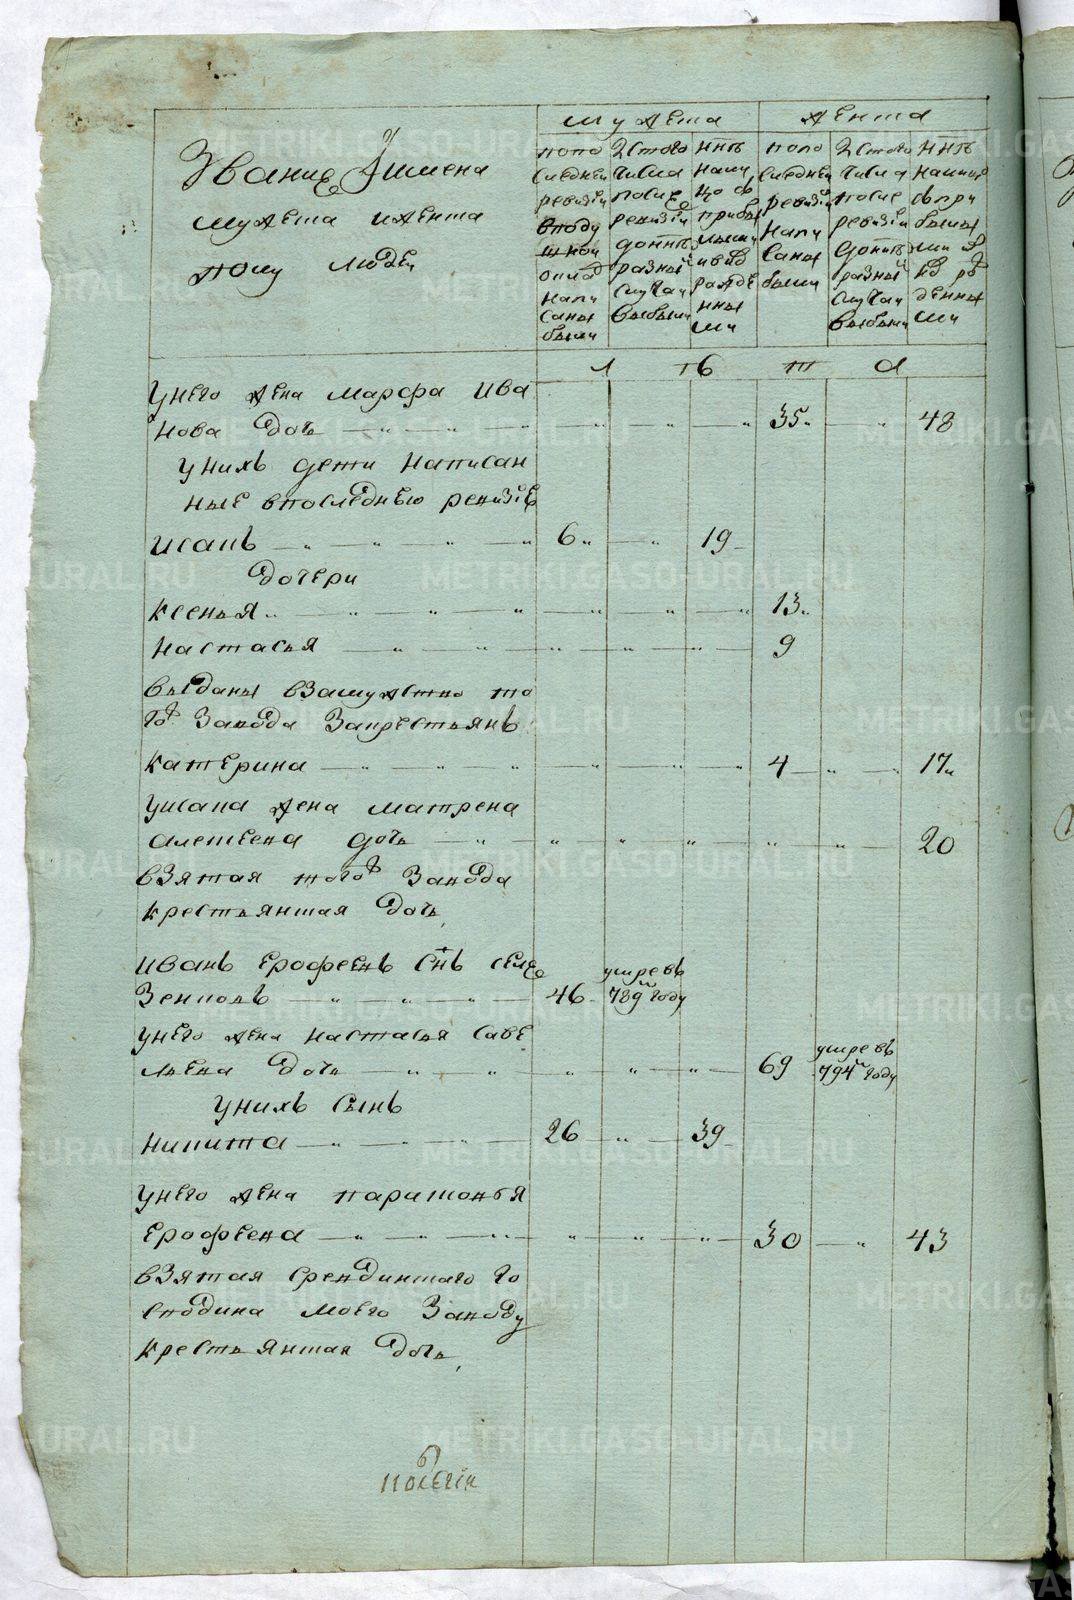 Звание Имена
мужеска и женска
полу людей
мужеска
женска
по по
следней
ревизии
в поду
шной
оклад
напи
саны
были
Из того
числа
после
ревизии
до ныне
разный
случаи
выбыли
ныне
нали
цо с
прибы
лыми
и внов
рожде
нны
ми
по по
следней
ревизии
напи
саны
были
Из того
числа
после
ревизии
до ныне
разный
случаи
выбыли
ныне
налицо
с при
былы
ми и в
нов ро
денны
ми
Л ѣ т а
У него жена марфа ива
нова дочь 35 48
У нихъ дети написан
ные в последнею ревизие
Исакъ 6 19
дочери
ксенья 13
настасья 9
выданы взамужство то
го завода за крестьянъ
катерина 4 17
У исака жена матрена
алексеева дочь 20
взятая того завода
крестьянская дочь
иванъ ерофеевъ снъ селе
зеньовъ 46 умре въ 789м году
У него жена настасья саве
льева дочь 69 умре въ 794м году
У нихъ сынъ
никита 26 39
У него жена парасковья
ерофеева 30 43
взятая с ревдинскаго го
сподина моего заводу
крестьянская дочь
METRIKI.GASO-URAL.RU